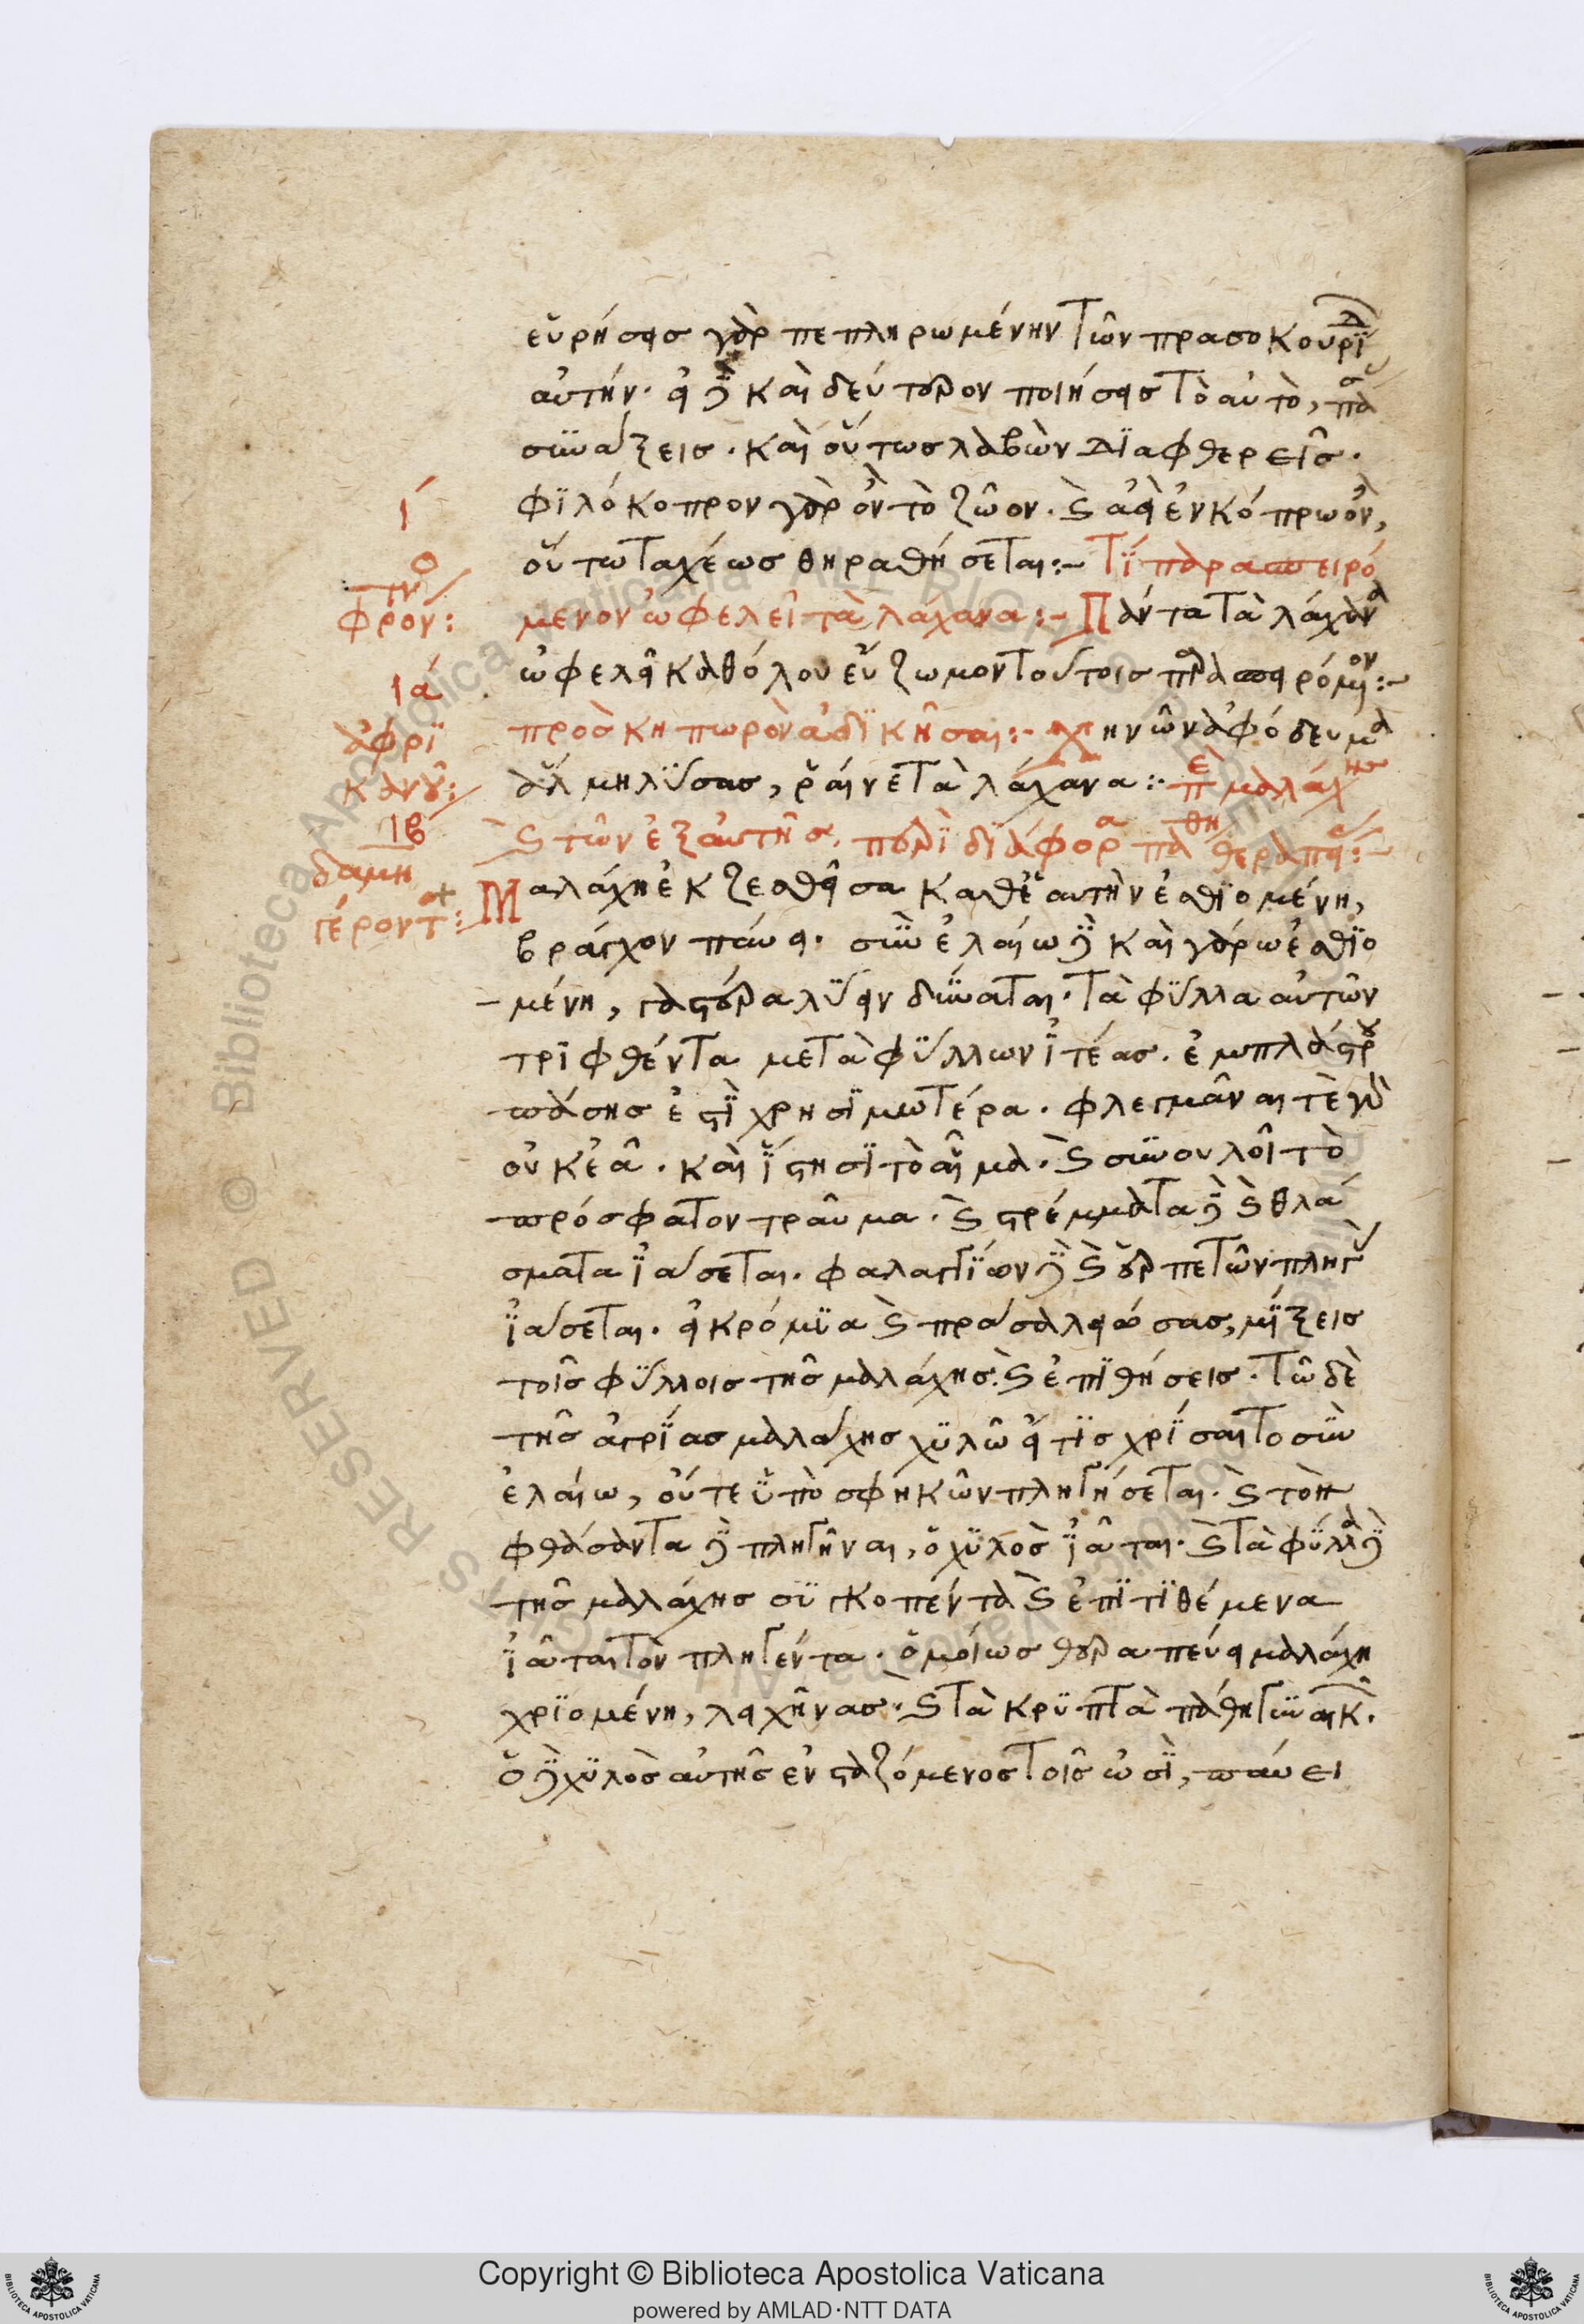 εὑρήσεις γὰρ πεπληρωμένην τῶν πρασοκουρίδ
αὐτήν· εἰ δὲ καὶ δεύτερον ποιήσεις τὸ αὐτὸ, πά
συνάξεις. καὶ οὕτως λαβὼν διαφθερεῖς.
φιλόκοπρον γὰρ ὂν τὸ ζῶον. καὶ ἀεὶ ἐν κόπρω ὂν,
οὕτω ταχέως θηραθήσεται:– τί παρασπειρό
μενον ὠφελεῖ τὰ λάχανα:– Πάντα τὰ λάχανα
ὠφελεῖ καθόλου εὔζωμον τούτοις παρασπειρόμενον:–
πρὸς κηπωρὸν ἀδικῆσαι:– χηνῶν ἀφόδευμα
ἅλμη λύσας, ῥαῖνε τὰ λάχανα:– πε μαλάχης
καὶ τῶν ἐξ αὐτῆς, περὶ διάφορα πάθη θεραπει:–
Μαλάχη ἐκζεσθεῖσα καθ' ἑαυτὴν ἐσθιομένη,
βράγχον παύει. σὺν ἐλαίω δὲ καὶ γάρω ἐσθιο
μένη, γαστέρα λύειν δύναται. τὰ φύλλα αὐτῶν
τριφθέντα μετὰ φύλλων ἰτέας. ἐμπλάστρου
πάσης ἐστὶ χρησιμωτέρα. φλεγμᾶναι τὲ γὰρ
οὐκ ἐᾶ. καὶ ἵστησι τὸ αἷμα. καὶ συνουλοῖ τὸ
πρόσφατον τραῦμα. καὶ στρέμματα δὲ καὶ θλά
σματα ἰάσεται. φαλαγγίων δὲ καὶ ἑρπετῶν πληγ
ἰάσεται. εἰ κρόμυα καὶ πράσα λειώσας, μίξεις
τοῖς φύλλοις τῆς μαλάχης. καὶ ἐπιθήσεις. τῶ δὲ
τῆς ἀγρίας μαλάχης χυλῶ εἴ τις χρίσαιτο σὺν
ἐλαίω, οὔτε ὑπὸ σφηκῶν πληγήσεται. καὶ τὸν
φθάσαντα δὲ πληγῆναι, ὁ χυλὸς ἰᾶται. καὶ τὰ φύλλα δὲ
τῆς μαλάχης συγκοπέντα καὶ ἐπιτιθέμενα
ἰᾶται τὸν πληγέντα. ὁμοίως θεραπεύει μαλάχη
χριομένη, λειχῆνας. καὶ τὰ κρυπτὰ πάθη γυναικ.
ὁ δὲ χυλὸς αὐτῆς ἐνσταζόμενος τοῖς ὠσὶ, παύει
ί
τν ο
φρον:
ιά
ἀφρι
κανοῦ:
ιβ
δαμη
γέροντ:
Copyright © Biblioteca Apostolica Vaticana
powered by AMLAD·NTT DATA